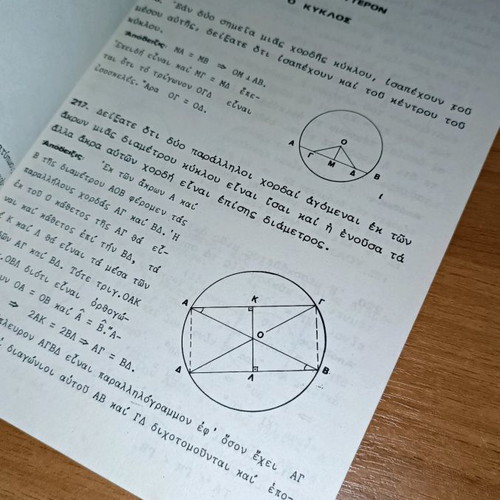 ΤΕΡΟΝ
Ο ΚΥΚΛΟΣ
Ἐάν δύο σημεῖα μιᾶς χορδῆς κύκλου, ἰσαπέχουν τοῦ
μέσου αὐτῆς, δείξατε ὅτι ἰσαπέχουν καί τοῦ κέντρου τοῦ
κύκλου.
Ἀπόδειξις: ΜΑ = ΜΒ ⇒ ΟΜ ⊥ ΑΒ.
Ἐπειδή εἶναι καί ΜΓ = ΜΔ ἕπε-
ται ὅτι τό τρίγωνον ΟΓΔ εἶναι
ἰσοσκελές. Ἄρα ΟΓ = ΟΔ.
Ο
Α
Γ
Μ
Δ
Β
217. Δείξατε ὅτι δύο παράλληλοι χορδαί ἀγόμεναι ἐκ τῶν
ἄκρων μιᾶς διαμέτρου κύκλου εἶναι ἴσαι καί ἡ ἑνοῦσα τά
ἄλλα ἄκρα αὐτῶν χορδή εἶναι ἐπίσης διάμετρος.
Ἀπόδειξις: Ἐκ τῶν ἄκρων Α καί
Β τῆς διαμέτρου ΑΟΒ φέρομεν τάς
παραλλήλους χορδάς ΑΓ καί ΒΔ. Ἡ
ἐκ τοῦ Ο κάθετος τῆς ΑΓ θά εἶ-
ναι καί κάθετος ἐπί τήν ΒΔ, τά
Κ καί Λ θά εἶναι τά μέσα τῶν
ΑΓ καί ΒΔ. Τότε τριγ.ΟΑΚ
.ΟΒΛ διότι εἶναι ὀρθογώ-
ΟΑ = ΟΒ καί Â = B̂. Ἀ-
⇒ 2ΑΚ = 2ΒΛ ⇒ ΑΓ = ΒΔ.
πλευρον ΑΓΒΔ εἶναι παραλληλόγραμμον ἐφ' ὅσον ἔχει ΑΓ
διαγώνιοι αὐτοῦ ΑΒ καί ΓΔ διχοτομοῦνται καί ἑπο-
Α
Κ
Γ
Ο
Δ
Λ
Β